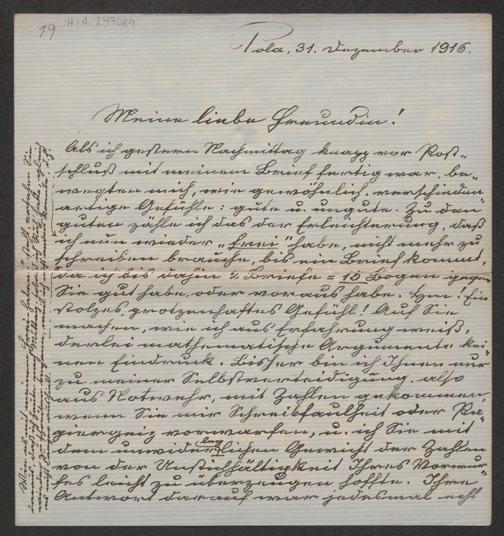 19 H.I.N. 247089
Pola, 31. Dezember 1916.
Meine liebe Freundin!
Als ich gestern Nachmittag knapp vor Post-
schluß mit meinem Brief fertig war, be-
wegten mich, wie gewöhnlich, verschieden-
artige Gefühle: gute u. ungute. Zu den
guten zähle ich das der Erleichterung, daß
ich nun wieder „frei" habe, nicht mehr zu
schreiben brauche, bis ein Brief kommt,
da ich bis dahin 2 Briefe = 15 Bogen gegen
Sie gut habe, oder voraus habe. Hm! Ein
stolzes, protzenhaftes Gefühl! Auf Sie
machen, wie ich aus Erfahrung weiß,
derlei mathematische Argumente kei-
nen Eindruck. Bisher bin ich Ihnen nur
zu meiner Selbstverteidigung, also
aus Notwehr, mit Zahlen gekommen,
wenn Sie mir Schreibfaulheit oder Pa-
piergeiz vorwarfen, u. ich Sie mit
dem unwiderleglichen Gewicht der Zahlen
von der Unstichhältigkeit Ihres Vorwur-
fes leicht zu überzeugen hoffte. Ihre
Antwort darauf war jedesmal echt